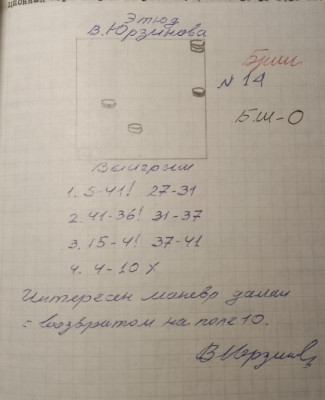 Этюд
В. Юрзинова
Бриш
N 14
Б.Ш-О
Выигрыш
1. 5-41! 27-31
2. 41-36! 31-37
3. 15-4! 37-41
4. 4-10 X
Интересен маневр дамки
с возвратом на поле 10.
В Юрзинов